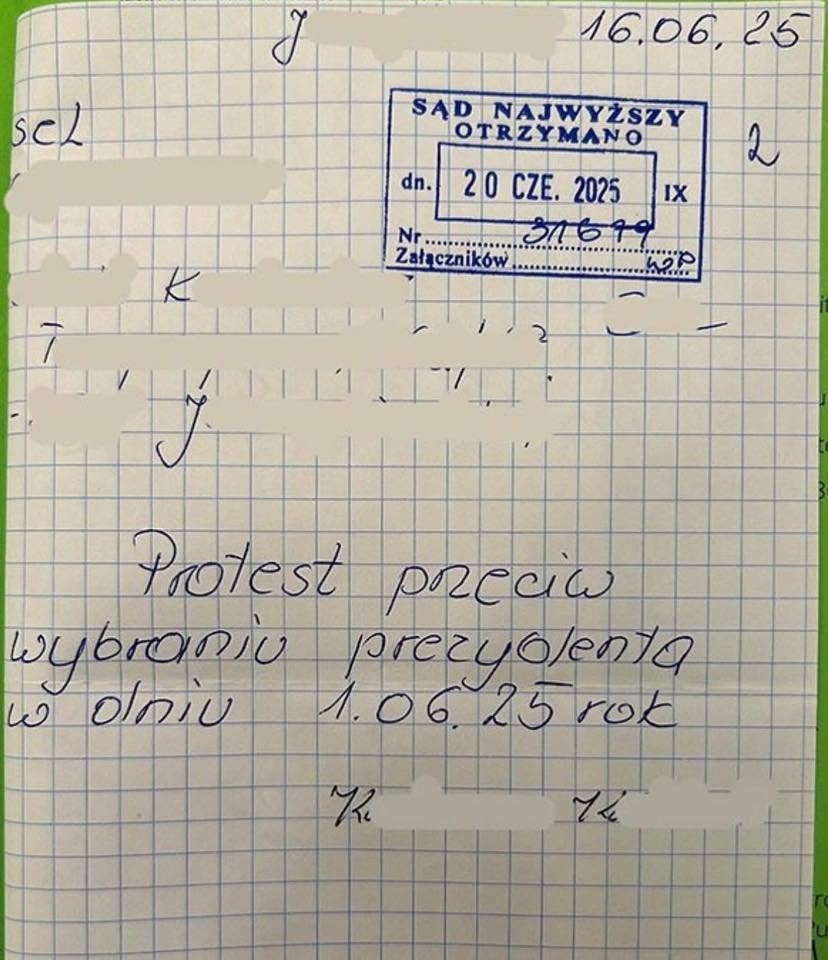 J 16.06.25
seL
SĄD NAJWYŻSZY
OTRZYMANO
dn. 20 CZE. 2025 IX
2
Nr
Załączników
K
T
J
Protest przeciw
wybraniu prezydenta
w dniu 1.06.25 rok
K K